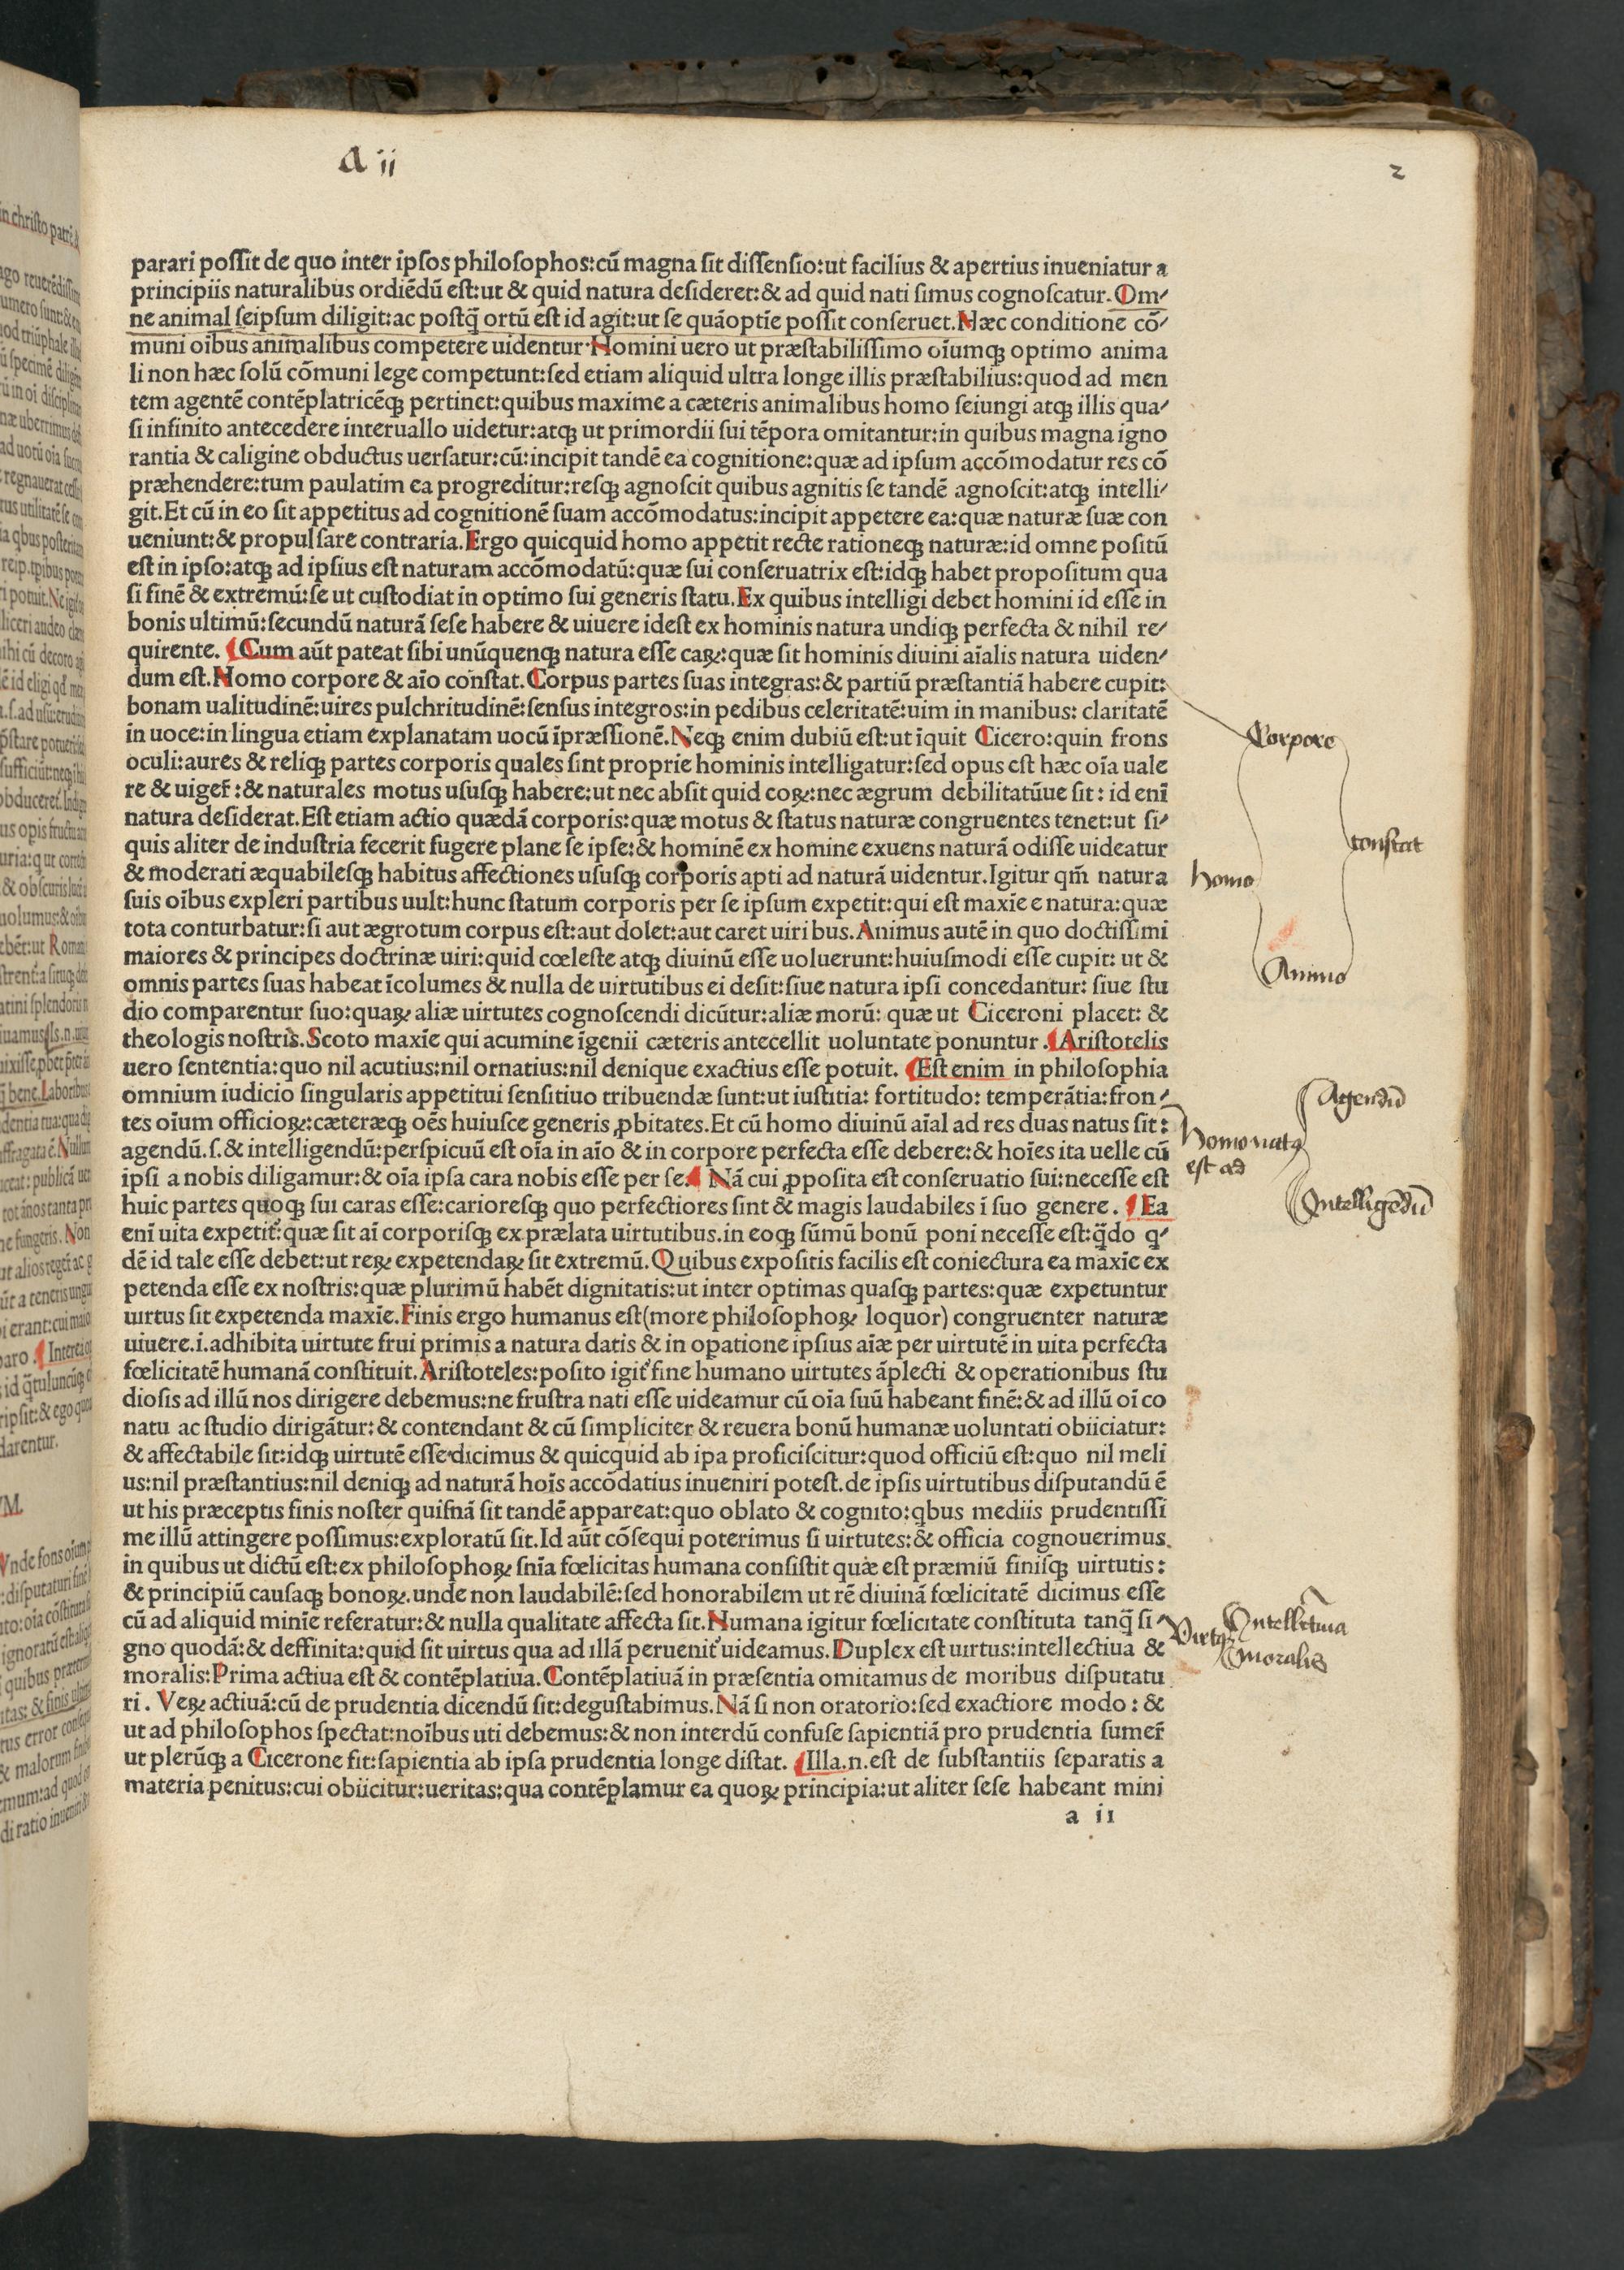 a ii
2
parari poſſit de quo inter ipſos philoſophos:cū magna ſit diſſenſio:ut facilius & apertius inueniatur a
principiis naturalibus ordiēdū eſt:ut & quid natura deſideret:& ad quid nati ſimus cognoſcatur.Om⸗
ne animal ſeipſum diligit:ac poſtq̄ ortū eſt id agit:ut ſe quāoptīe poſſit conſeruet.Hæc conditione cō⸗
muni oībus animalibus competere uidentur.Homini uero ut præſtabiliſſimo oīumqꝫ optimo anima
li non hæc ſolū cōmuni lege competunt:ſed etiam aliquid ultra longe illis præſtabilius:quod ad men
tem agentē contēplatricēqꝫ pertinet:quibus maxime a cæteris animalibus homo ſeiungi atqꝫ illis qua⸗
ſi infinito antecedere interuallo uidetur:atqꝫ ut primordii ſui tēpora omitantur:in quibus magna igno
rantia & caligine obductus uerſatur:cū:incipit tandē ea cognitione:quæ ad ipſum accōmodatur res cō
præhendere:tum paulatim ea progreditur:reſqꝫ agnoſcit quibus agnitis ſe tandē agnoſcit:atqꝫ intelli⸗
git.Et cū in eo ſit appetitus ad cognitionē ſuam accōmodatus:incipit appetere ea:quæ naturæ ſuæ con
ueniunt:& propulſare contraria.Ergo quicquid homo appetit recte rationeqꝫ naturæ:id omne poſitū
eſt in ipſo:atqꝫ ad ipſius eſt naturam accōmodatū:quæ ſui conſeruatrix eſt:idqꝫ habet propoſitum qua
ſi finē & extremū:ſe ut cuſtodiat in optimo ſui generis ſtatu.Ex quibus intelligi debet homini id eſſe in
bonis ultimū:ſecundū naturā ſeſe habere & uiuere ideſt ex hominis natura undiqꝫ perfecta & nihil re⸗
quirente. ¶Cum aūt pateat ſibi unūquenqꝫ natura eſſe caꝝ:quæ ſit hominis diuini aīalis natura uiden⸗
dum eſt.Homo corpore & aīo conſtat.Corpus partes ſuas integras:& partiū præſtantiā habere cupit:
bonam ualitudinē:uires pulchritudinē:ſenſus integros:in pedibus celeritatē:uim in manibus: claritatē
in uoce:in lingua etiam explanatam uocū īpræſſionē.Neqꝫ enim dubiū eſt:ut īquit Cicero:quin frons
oculi:aures & reliqꝫ partes corporis quales ſint proprie hominis intelligatur:ſed opus eſt hæc oīa uale
re & uiger̄:& naturales motus uſuſqꝫ habere:ut nec abſit quid coꝝ:nec ægrum debilitatūue ſit: id enī
natura deſiderat.Eſt etiam actio quædā corporis:quæ motus & ſtatus naturæ congruentes tenet:ut ſi⸗
quis aliter de induſtria fecerit fugere plane ſe ipſe:& hominē ex homine exuens naturā odiſſe uideatur
& moderati æquabileſqꝫ habitus affectiones uſuſqꝫ corporis apti ad naturā uidentur.Igitur qm̄ natura
ſuis oībus expleri partibus uult:hunc ſtatum corporis per ſe ipſum expetit:qui eſt maxīe e natura:quæ
tota conturbatur:ſi aut ægrotum corpus eſt:aut dolet:aut caret uiribus.Animus autē in quo doctiſſimi
maiores & principes doctrinæ uiri:quid cœleſte atqꝫ diuinū eſſe uoluerunt:huiuſmodi eſſe cupit: ut &
omnis partes ſuas habeat īcolumes & nulla de uirtutibus ei deſit:ſiue natura ipſi concedantur: ſiue ſtu
dio comparentur ſuo:quaꝝ aliæ uirtutes cognoſcendi dicūtur:aliæ morū: quæ ut Ciceroni placet: &
theologis noſtris.Scoto maxīe qui acumine īgenii cæteris antecellit uoluntate ponuntur.¶Ariſtotelis
uero ſententia:quo nil acutius:nil ornatius:nil denique exactius eſſe potuit. ¶Eſt enim in philoſophia
omnium iudicio ſingularis appetitui ſenſitiuo tribuendæ ſunt:ut iuſtitia: fortitudo: temperātia:fron⸗
tes oīum officioꝝ:cæteræqꝫ oēs huiuſce generis ꝓbitates.Et cū homo diuinū aīal ad res duas natus ſit:
agendū.ſ.& intelligendū:perſpicuū eſt oīa in aīo & in corpore perfecta eſſe debere:& hoīes ita uelle cū
ipſi a nobis diligamur:& oīa ipſa cara nobis eſſe per ſe.¶ Nā cui ꝓpoſita eſt conſeruatio ſui:neceſſe eſt
huic partes quoqꝫ ſui caras eſſe:carioreſqꝫ quo perfectiores ſint & magis laudabiles ī ſuo genere. ¶Ea
enī uita expetit̄:quæ ſit aī corporiſqꝫ ex prælata uirtutibus.in eoqꝫ ſūmū bonū poni neceſſe eſt:q̄do q⸗
dē id tale eſſe debet:ut reꝝ expetendaꝝ ſit extremū.Quibus expoſitis facilis eſt coniectura ea maxīe ex
petenda eſſe ex noſtris:quæ plurimū habēt dignitatis:ut inter optimas quaſqꝫ partes:quæ expetuntur
uirtus ſit expetenda maxīe.Finis ergo humanus eſt(more philoſophoꝝ loquor) congruenter naturæ
uiuere.i.adhibita uirtute frui primis a natura datis & in opatione ipſius aīæ per uirtutē in uita perfecta
fœlicitatē humanā conſtituit.Ariſtoteles:poſito igit̄ fine humano uirtutes āplecti & operationibus ſtu
dioſis ad illū nos dirigere debemus:ne fruſtra nati eſſe uideamur cū oīa ſuū habeant finē:& ad illū oī co
natu ac ſtudio dirigātur:& contendant & cū ſimpliciter & reuera bonū humanæ uoluntati obiiciatur:
& affectabile ſit:idqꝫ uirtutē eſſe dicimus & quicquid ab ipa proficiſcitur:quod officiū eſt:quo nil meli
us:nil præſtantius:nil deniqꝫ ad naturā hoīs accōdatius inueniri poteſt.de ipſis uirtutibus diſputandū ē
ut his præceptis finis noſter quiſnā ſit tandē appareat:quo oblato & cognito:qbus mediis prudentiſſi
me illū attingere poſſimus:exploratū ſit.Id aūt cōſequi poterimus ſi uirtutes:& officia cognouerimus.
in quibus ut dictū eſt:ex philoſophoꝝ ſnīa fœlicitas humana conſiſtit quæ eſt præmiū finiſqꝫ uirtutis:
& principiū cauſaqꝫ bonoꝝ.unde non laudabilē:ſed honorabilem ut rē diuinā fœlicitatē dicimus eſſe
cū ad aliquid minīe referatur:& nulla qualitate affecta ſit.Humana igitur fœlicitate conſtituta tanq̄ ſi⸗
gno quodā:& deffinita:quid ſit uirtus qua ad illā peruenit̄ uideamus.Duplex eſt uirtus:intellectiua &
moralis:Prima actiua eſt & contēplatiua.Contēplatiuā in præſentia omitamus de moribus diſputatu
ri.Veꝝ actiuā:cū de prudentia dicendū ſit:deguſtabimus.Nā ſi non oratorio:ſed exactiore modo: &
ut ad philoſophos ſpectat:noībus uti debemus:& non interdū confuſe ſapientiā pro prudentia ſumer̄
ut plerūqꝫ a Cicerone fit:ſapientia ab ipſa prudentia longe diſtat. ¶Illa.n.eſt de ſubſtantiis ſeparatis a
materia penitus:cui obiicitur:ueritas:qua contēplamur ea quoꝝ principia:ut aliter ſeſe habeant mini
a ii
Corpore
homo
conſtat
Animo
Agendū
homo natꝯ
eſt ad
Intelligēdū
Virtꝯ
Intellectiua
Moralis